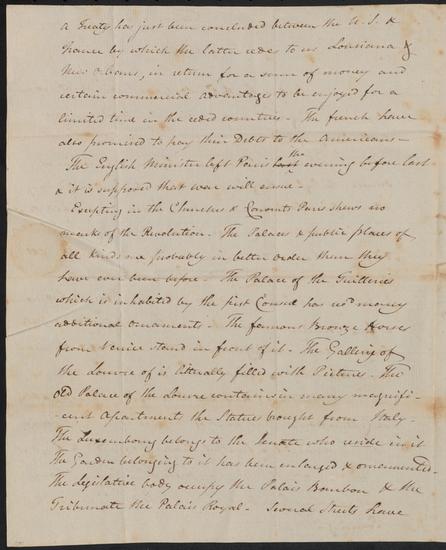 a Treaty has just been concluded between the U. S. &
France by which the latter cedes to us Louisiana &
New Orleans, in return for a sum of money and
certain commercial advantages to be enjoyed for a
limited time in the ceded countries - The french have
also promised to pay their Debts to the Americans -
The English Minister left Paris the evening before last
& it is supposed that war will ensue -
Excepting in the Churches & Convents Paris shews no
marks of the Revolution - The Palaces & public places of
all kinds are probably in better order than they
have ever been before - The Palace of the Tuilleries
which is inhabited by the first Consul has rec'd many
additional ornaments - The famous Bronze Horses
from Venice stand in front of it - The Gallery of
the Louvre is litterally filled with Pictures - The
Old Palace of the Louvre contains in many magnifi-
-cent Apartment the Statues bought from Italy -
The Luxembourg belongs to the Senate who reside in it
The Garden belonging to it has been enlarged & ornamented -
The Legislative body occupy the Palais Bourbon & the
Tribunate the Palais Royal - Several Streets have